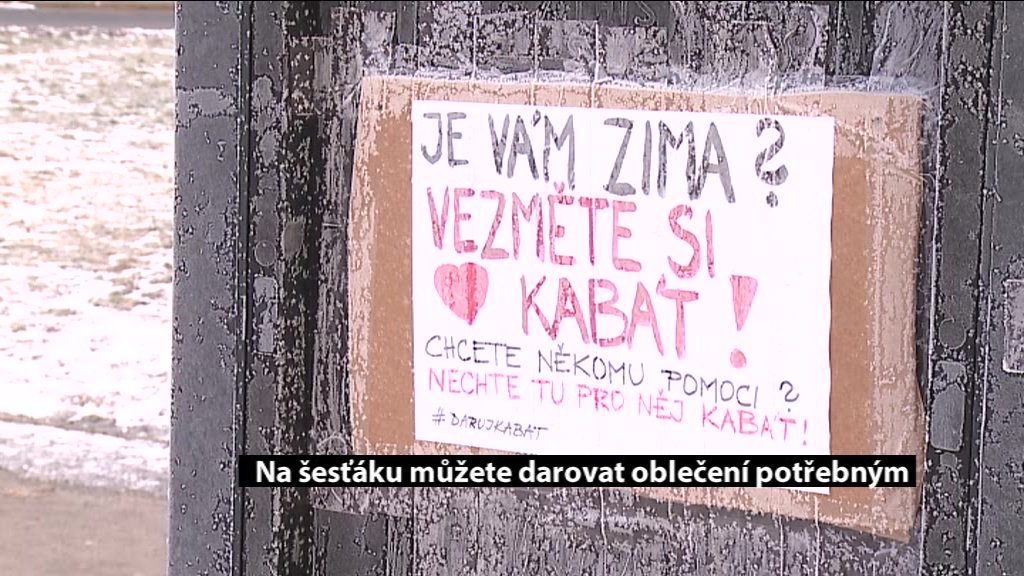 JE VÁM ZIMA?
VEZMĚTE SI
KABÁT!
CHCETE NĚKOMU POMOCI?
NECHTE TU PRO NĚJ KABÁT!
#DARUJKABÁT
Na šesťáku můžete darovat oblečení potřebným